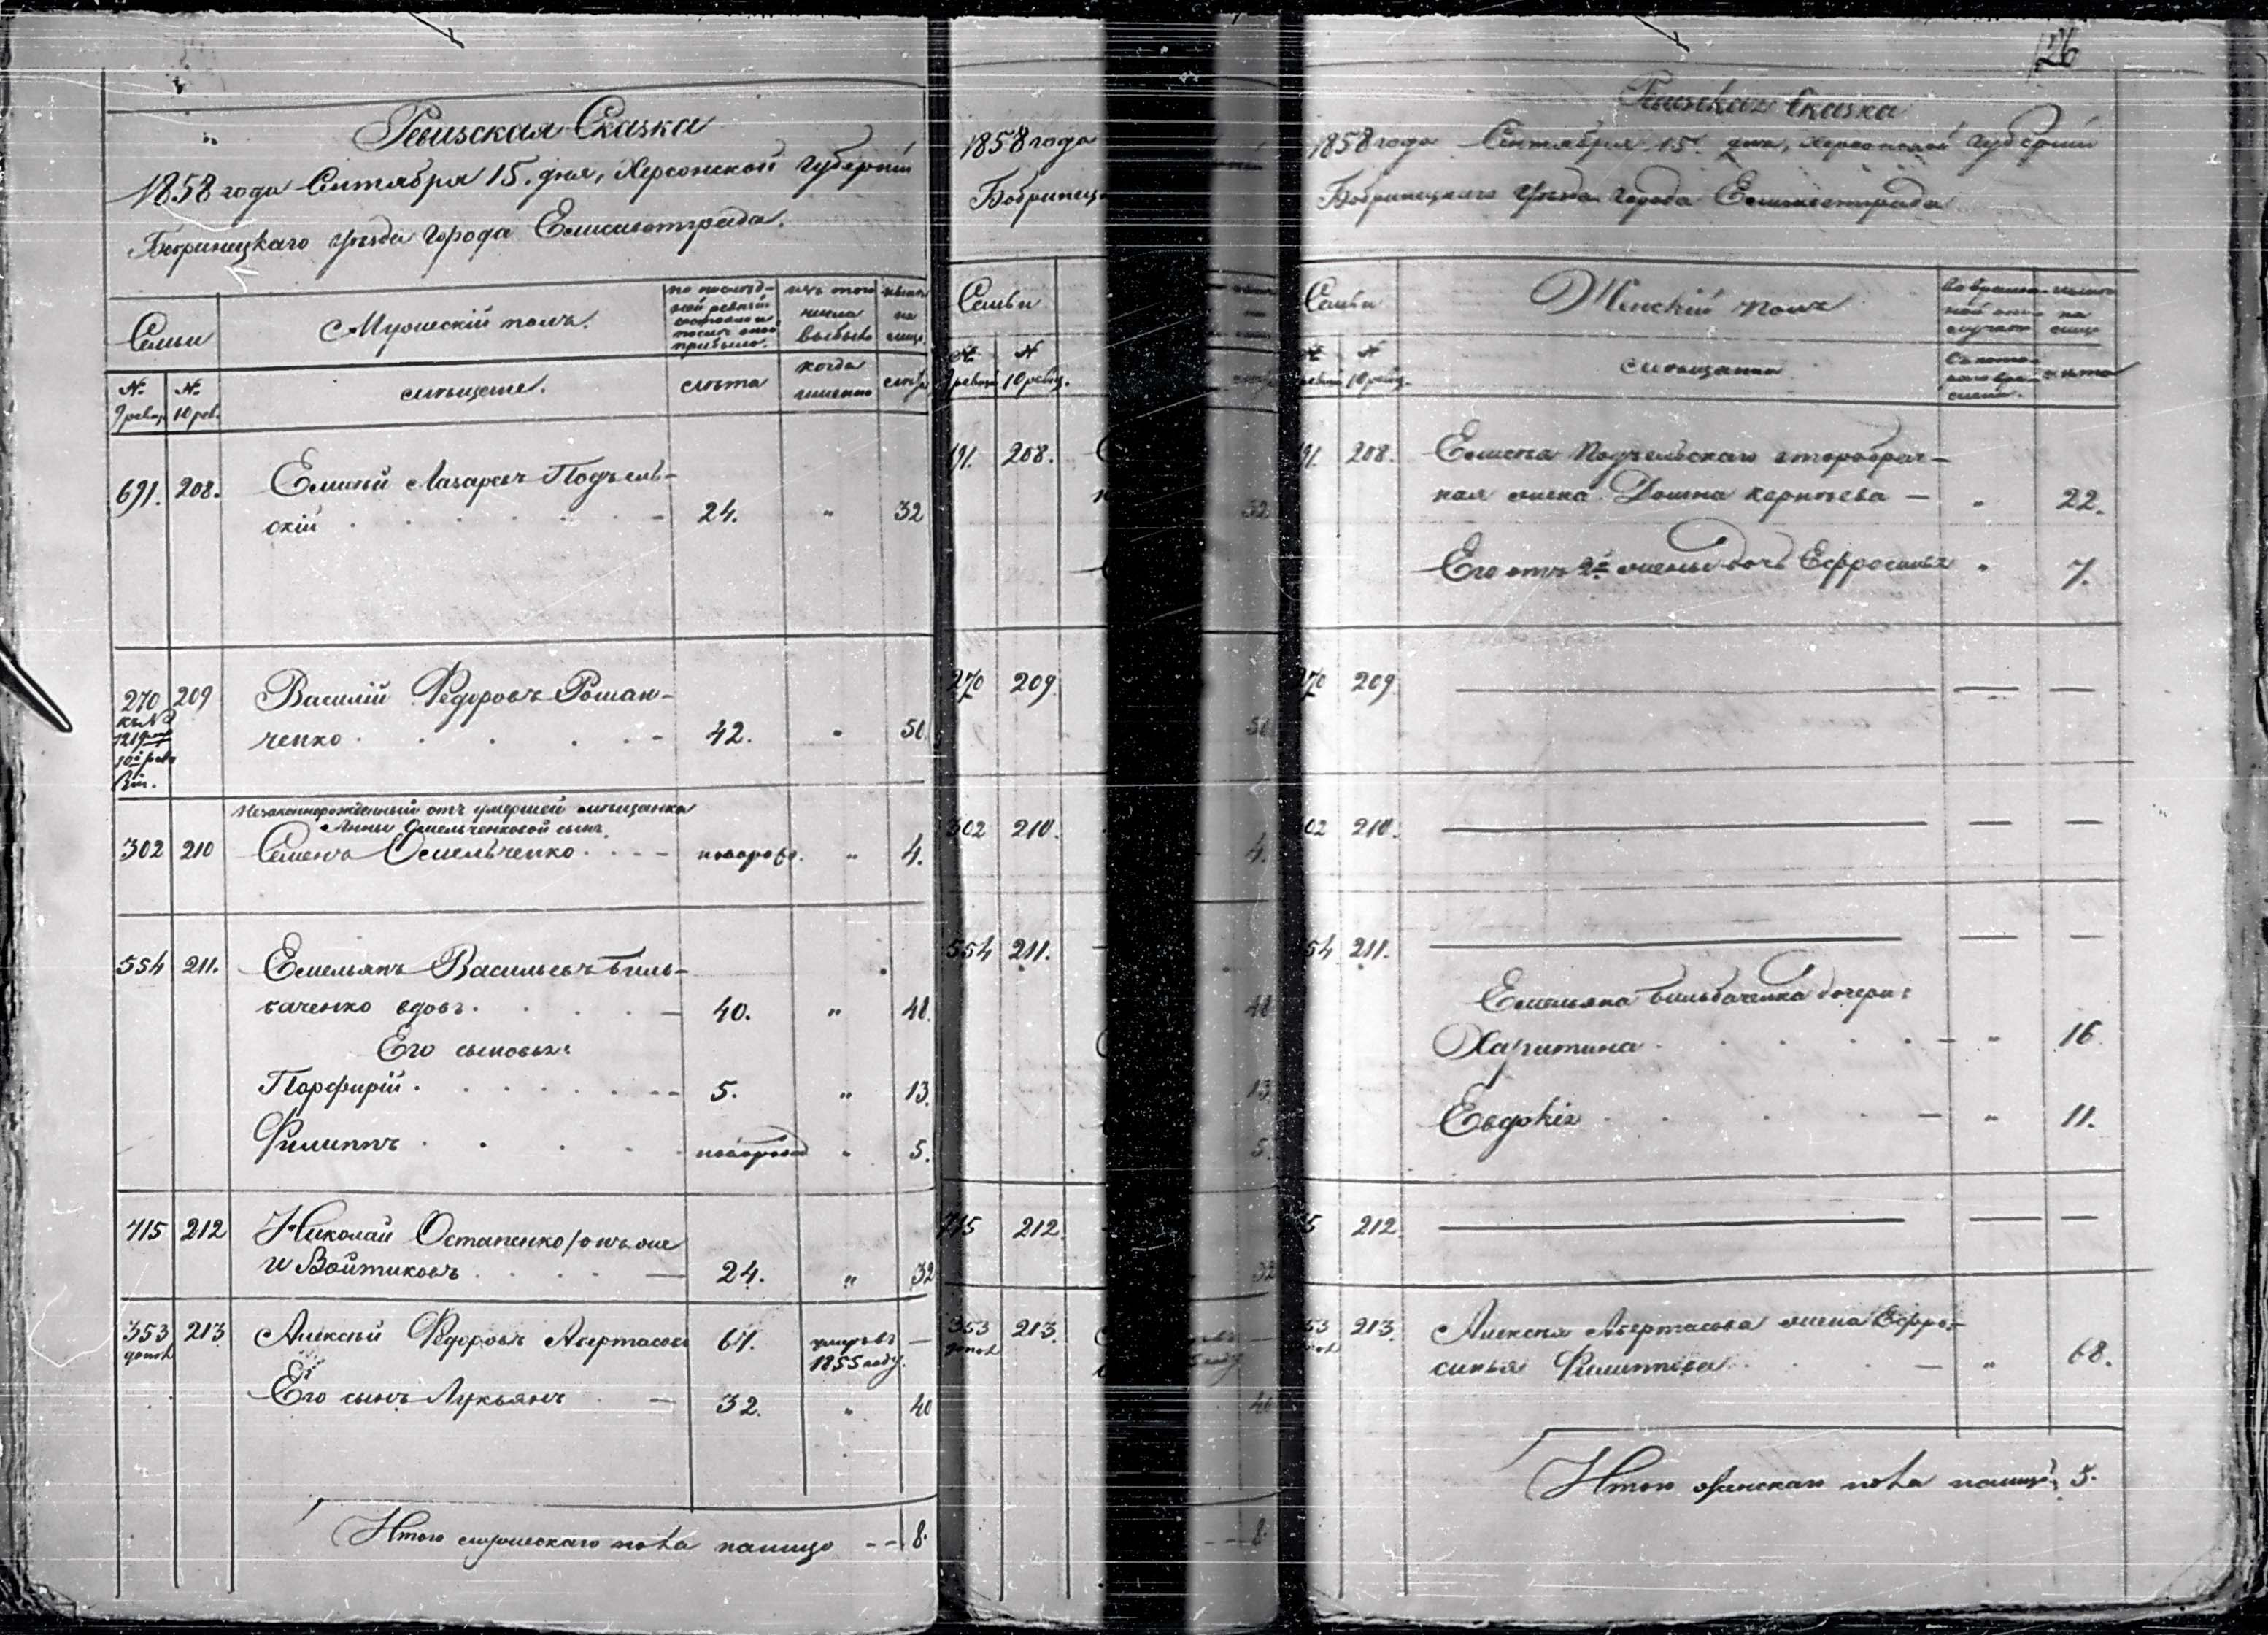 Ревизская Сказка
1858 года Сентября 15. дня, Херсонской Губерніи
Бобринецкаго Уѣзда Города Елисаветграда.
Семьи
Мужескій полъ.
по послѣд-
ней ревизіи
состояло и
послѣ оной
прибыло.
изъ того
числа
выбыло
нынѣ
на
лицо.
№
9 ревиз.
№
10 рев.
мѣщане.
лѣта
когда
именно
лѣта
691. 208. Елисей Лазаревъ Подъель-
скій 24. " 32
270 209 Василій Федоровъ Роман-
къ №
1219
10й реви
зіи.
ченко 42. " 50.
Незаконнорожденный отъ умершей мѣщанки
Анны Омельченковой сынъ
302 210 Семенъ Омельченко новорож. " 4.
554 211. Емельянъ Васильевъ Биль-
баченко вдовъ 40. " 48.
Его сыновья:
Порфирій 5. " 13.
Филиппъ новорожд " 5.
715 212 Николай Остапенко /онъ же
и Войтиковъ 24. " 32
353 213 Алексѣй Федоровъ Авертасовъ 67. умеръ въ —
допол 1855 году.
Его сынъ Лукьянъ 32. " 40
Итого мужескаго пола налицо 8.
1858 года
Бобринец
Семьи
№ №
9 ревиз 10 ревиз.
91. 208.
32
270 209
50
302 210.
4.
554 211.
48
13
5.
715 212.
32
353 213.
допол
40
8.
26
Ревизская Сказка
1858 года Сентября 15. дня, Херсонской Губерніи
Бобринецкаго Уѣзда Города Елисаветграда
Семьи
Женскій полъ
во времен-
ной отлу-
чкѣ
нынѣ
на
лицо
№ №
10 ревиз.
мѣщанки
съ кото-
раго вре-
мени.
лѣта
91. 208. Елисея Подъельскаго второбрач-
ная жена Домна Карпѣева — " 22.
Его отъ 2й жены дочь Ефросинья " 7.
70 209
02 210.
54 211.
Емельяна Бильбаченка дочери:
Харитина " 16
Евдокія " 11.
5 212.
53 213. Алексѣя Авертасова жена Ефро-
синья Филиппова " 68.
Итого женскаго пола налицо 5.